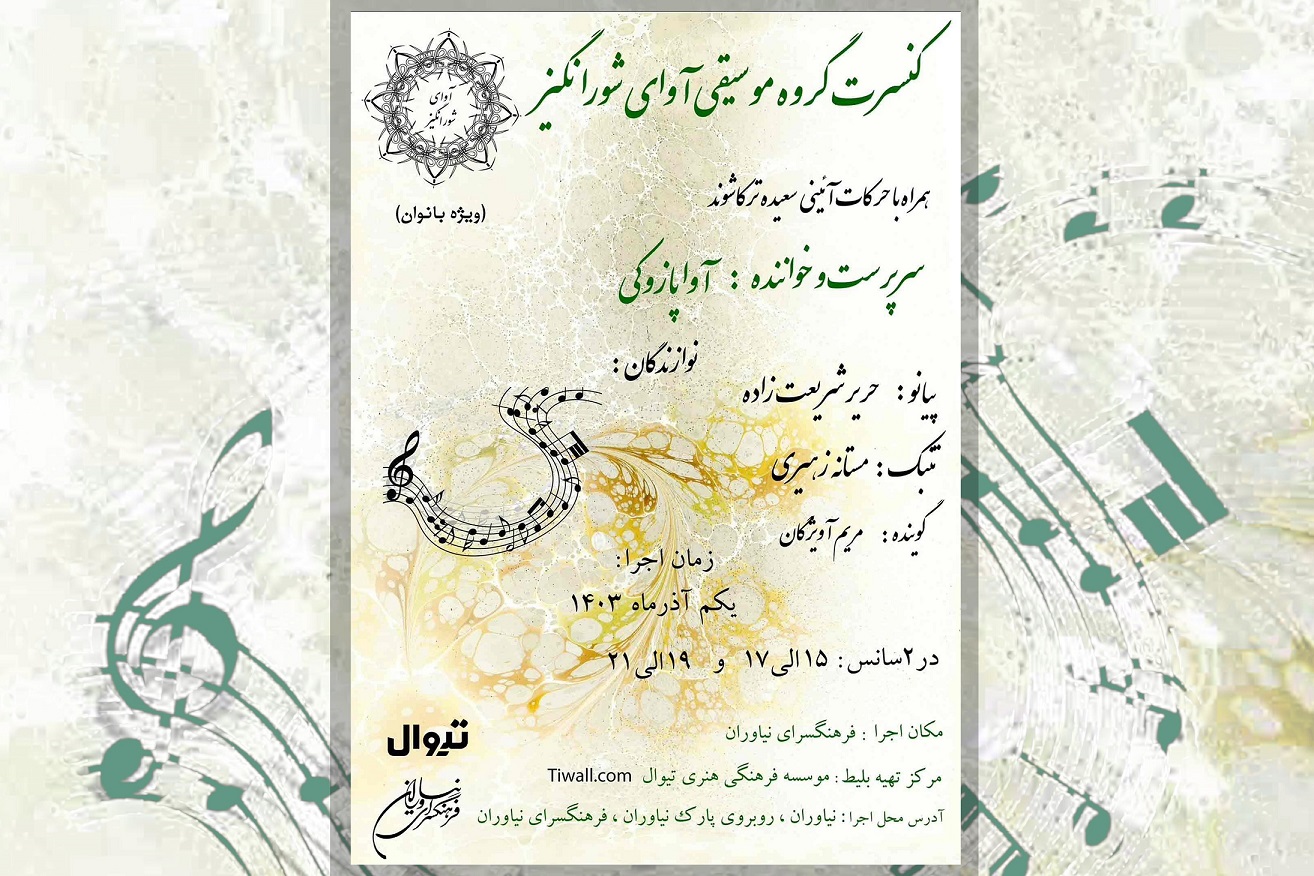 کنسرت گروه موسیقی آوای شورانگیز
آوای
شورانگیز
(ویژه بانوان)
همراه با حرکات آئینی سعیده ترکاشوند
سرپرست و خواننده : آوا پازوکی
نوازندگان :
پیانو : حریر شریعت زاده
تنبک : مستانه زهیری
گوینده : مریم آویژگان
زمان اجرا:
یکم آذرماه ۱۴۰۳
در ۲سانس: ۱۵ الی ۱۷ و ۱۹ الی ۲۱
مکان اجرا : فرهنگسرای نیاوران
مرکز تهیه بلیط : موسسه فرهنگی هنری تیوال Tiwall.com
آدرس محل اجرا : نیاوران ، روبروی پارک نیاوران ، فرهنگسرای نیاوران
تیوال
فرهنگسرای نیاوران